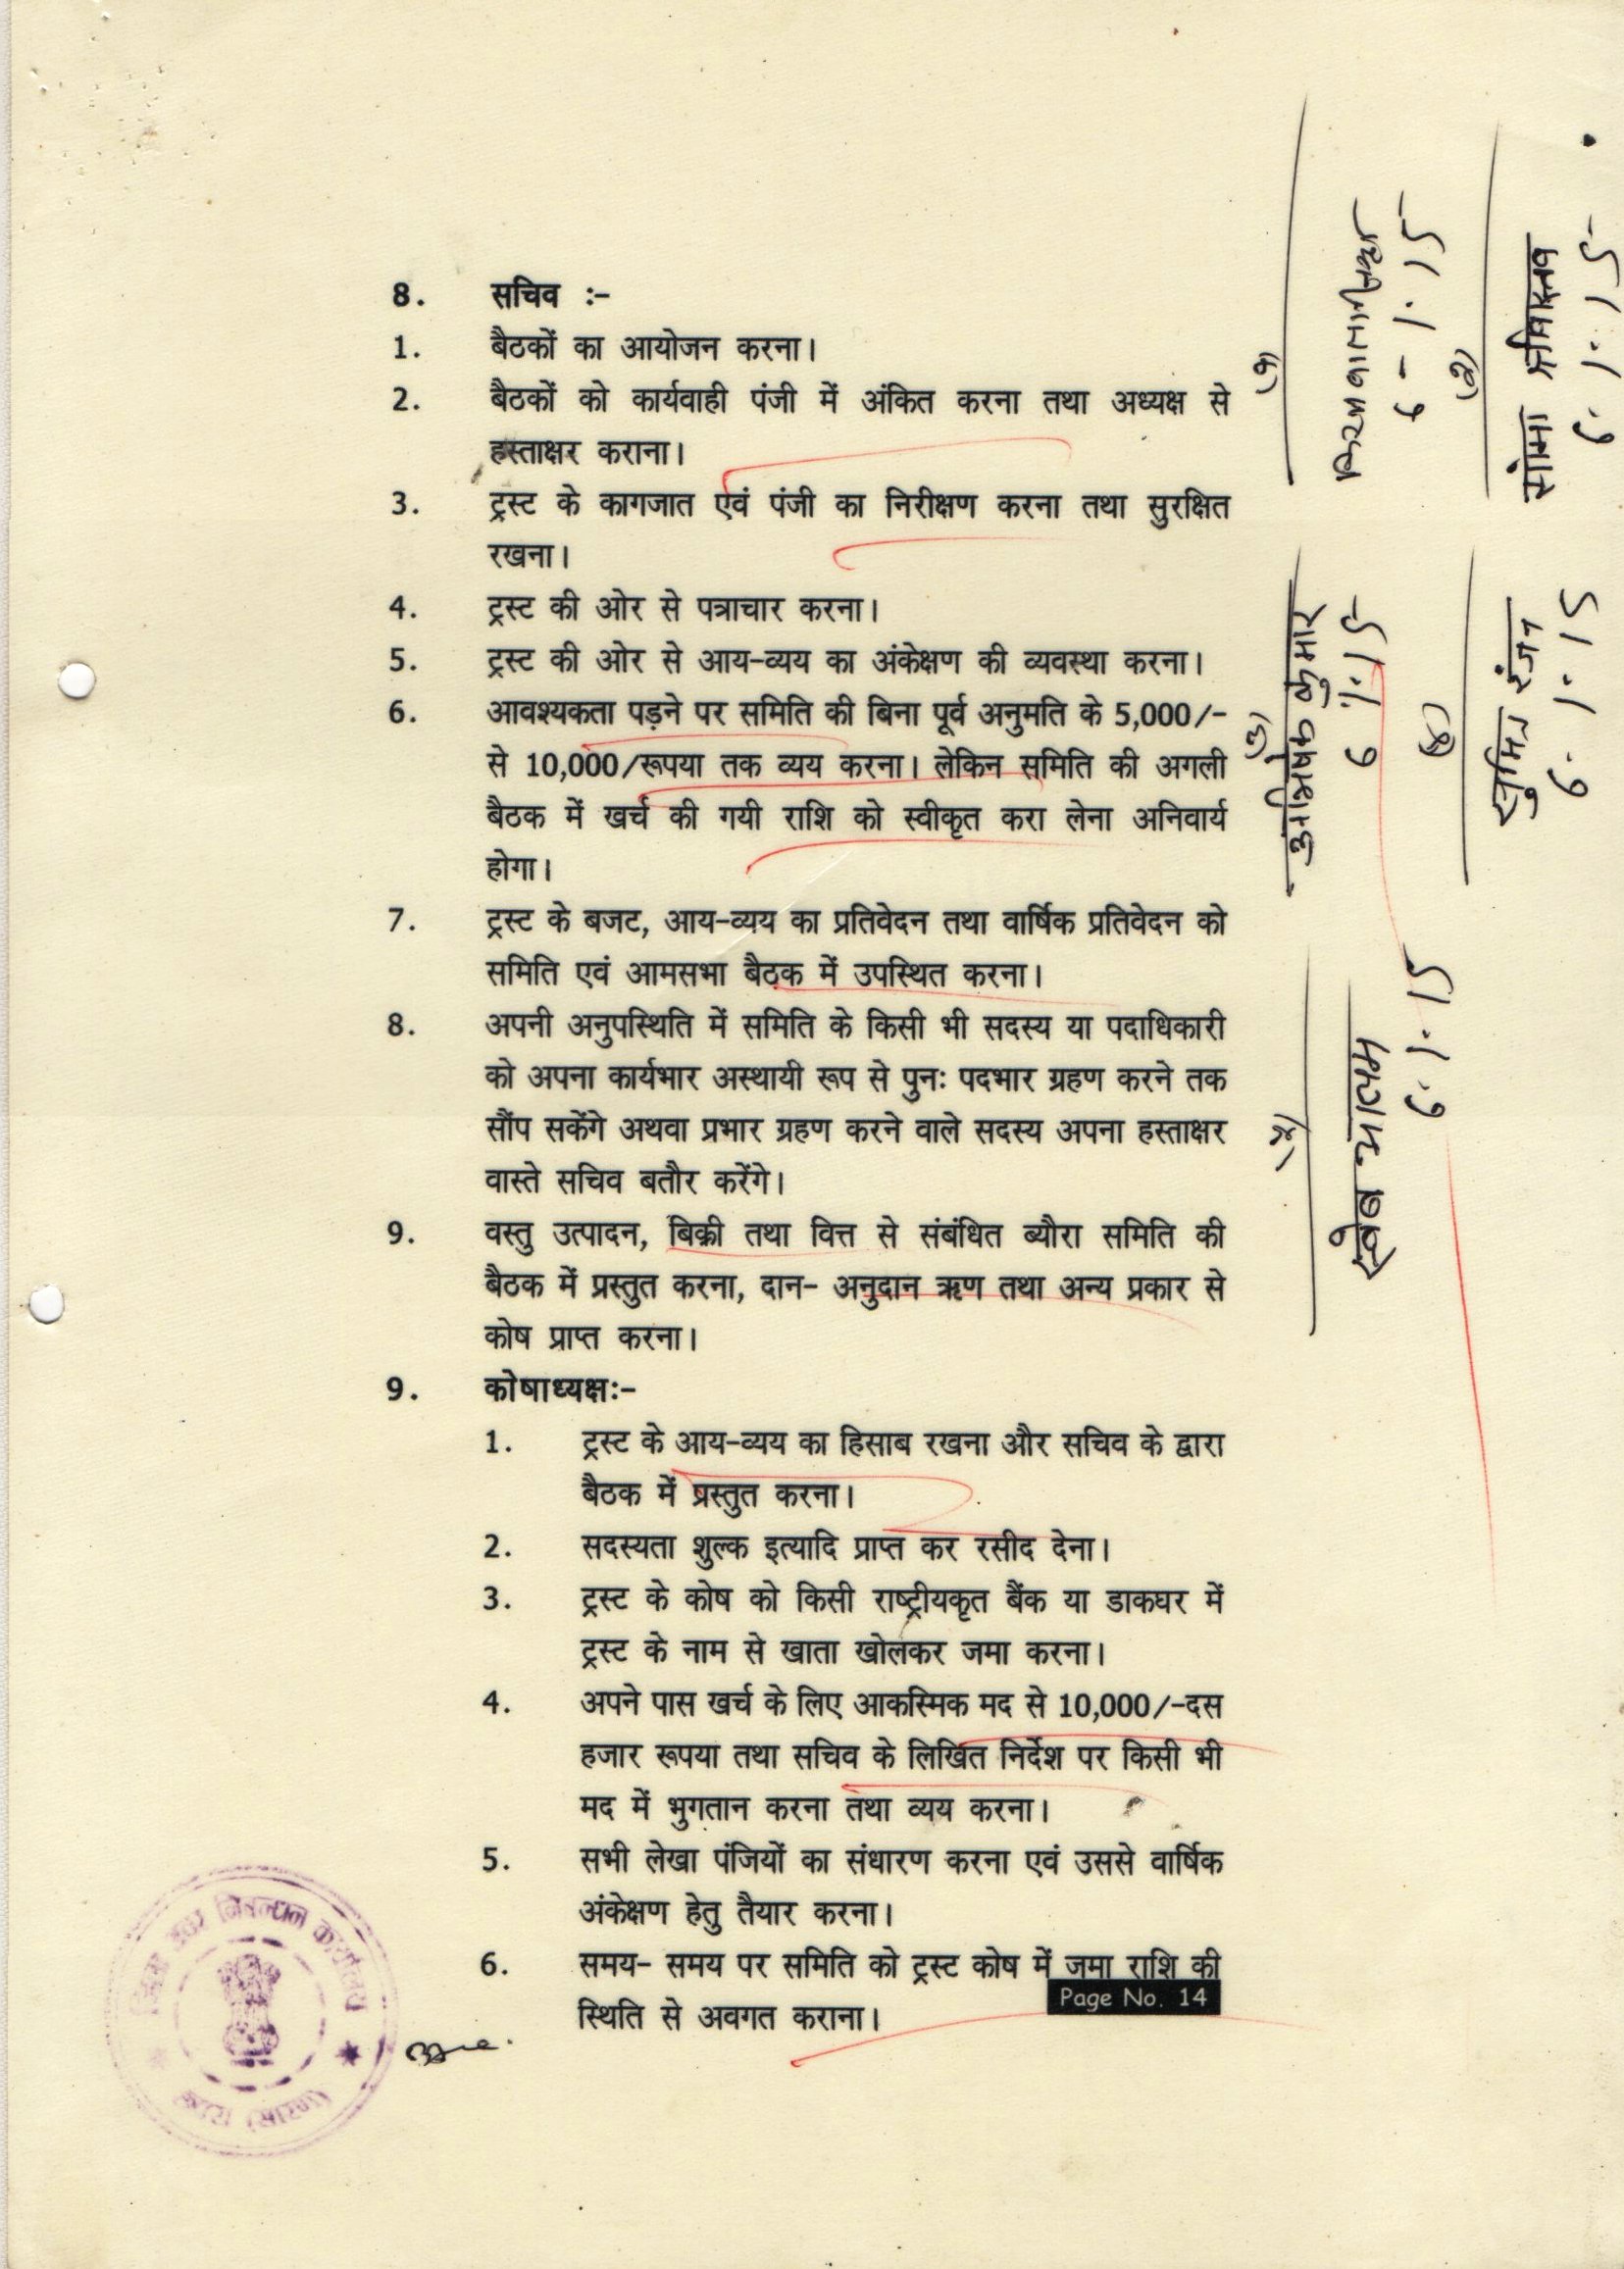 8. सचिव :-
1. बैठकों का आयोजन करना।
2. बैठकों को कार्यवाही पंजी में अंकित करना तथा अध्यक्ष से
हस्ताक्षर कराना।
3. ट्रस्ट के कागजात एवं पंजी का निरीक्षण करना तथा सुरक्षित
रखना।
4. ट्रस्ट की ओर से पत्राचार करना।
5. ट्रस्ट की ओर से आय-व्यय का अंकेक्षण की व्यवस्था करना।
6. आवश्यकता पड़ने पर समिति की बिना पूर्व अनुमति के 5,000/-
से 10,000/रूपया तक व्यय करना। लेकिन समिति की अगली
बैठक में खर्च की गयी राशि को स्वीकृत करा लेना अनिवार्य
होगा।
7. ट्रस्ट के बजट, आय-व्यय का प्रतिवेदन तथा वार्षिक प्रतिवेदन को
समिति एवं आमसभा बैठक में उपस्थित करना।
8. अपनी अनुपस्थिति में समिति के किसी भी सदस्य या पदाधिकारी
को अपना कार्यभार अस्थायी रूप से पुनः पदभार ग्रहण करने तक
सौंप सकेंगे अथवा प्रभार ग्रहण करने वाले सदस्य अपना हस्ताक्षर
वास्ते सचिव बतौर करेंगे।
9. वस्तु उत्पादन, बिक्री तथा वित्त से संबंधित ब्यौरा समिति की
बैठक में प्रस्तुत करना, दान- अनुदान ऋण तथा अन्य प्रकार से
कोष प्राप्त करना।
9. कोषाध्यक्षः-
1. ट्रस्ट के आय-व्यय का हिसाब रखना और सचिव के द्वारा
बैठक में प्रस्तुत करना।
2. सदस्यता शुल्क इत्यादि प्राप्त कर रसीद देना।
3. ट्रस्ट के कोष को किसी राष्ट्रीयकृत बैंक या डाकघर में
ट्रस्ट के नाम से खाता खोलकर जमा करना।
4. अपने पास खर्च के लिए आकस्मिक मद से 10,000/-दस
हजार रूपया तथा सचिव के लिखित निर्देश पर किसी भी
मद में भुगतान करना तथा व्यय करना।
5. सभी लेखा पंजियों का संधारण करना एवं उससे वार्षिक
अंकेक्षण हेतु तैयार करना।
6. समय- समय पर समिति को ट्रस्ट कोष में जमा राशि की
स्थिति से अवगत कराना।
Page No. 14
6-1-15
6.1.15
अभिषेक कुमार
6.1.15
सुमित रंजन
6.1.15
आलम
6.1.15
निबन्धन कार्यालय
(सारण)